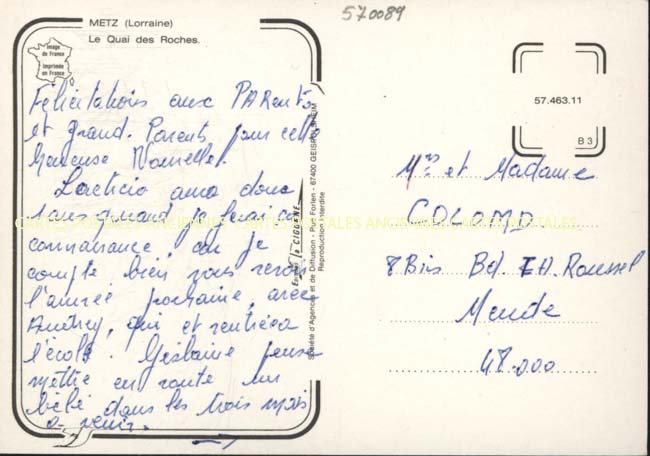 570089
METZ (Lorraine)
Le Quai des Roches.
Image
de France
Imprimée
en France
Félicitations aux PARents
et grand-Parents pour cette
heureuse Nouvelle.
Laetitia aura donc
sans quand je ferai sa
connaissance, car je
compte bien vous revoir
l'année prochaine, avec
Audrey, qui et rentrée a
l'école. Gislaine pense
mettre en route un
bébé dans les trois mois
a venir.
Editions "la CIGOGNE"
Société d'Agences et de Diffusion - Rue Forlen - 67400 GEISPOLSHEIM
Reproduction interdite
57.463.11
B 3
Mrs et Madame
COLOMB
8 Bis Bd. TH. Roussel
Mende
48.000
CARTES POSTALES ANCIENNES CARTES POSTALES ANCIENNES CARTES POSTALES